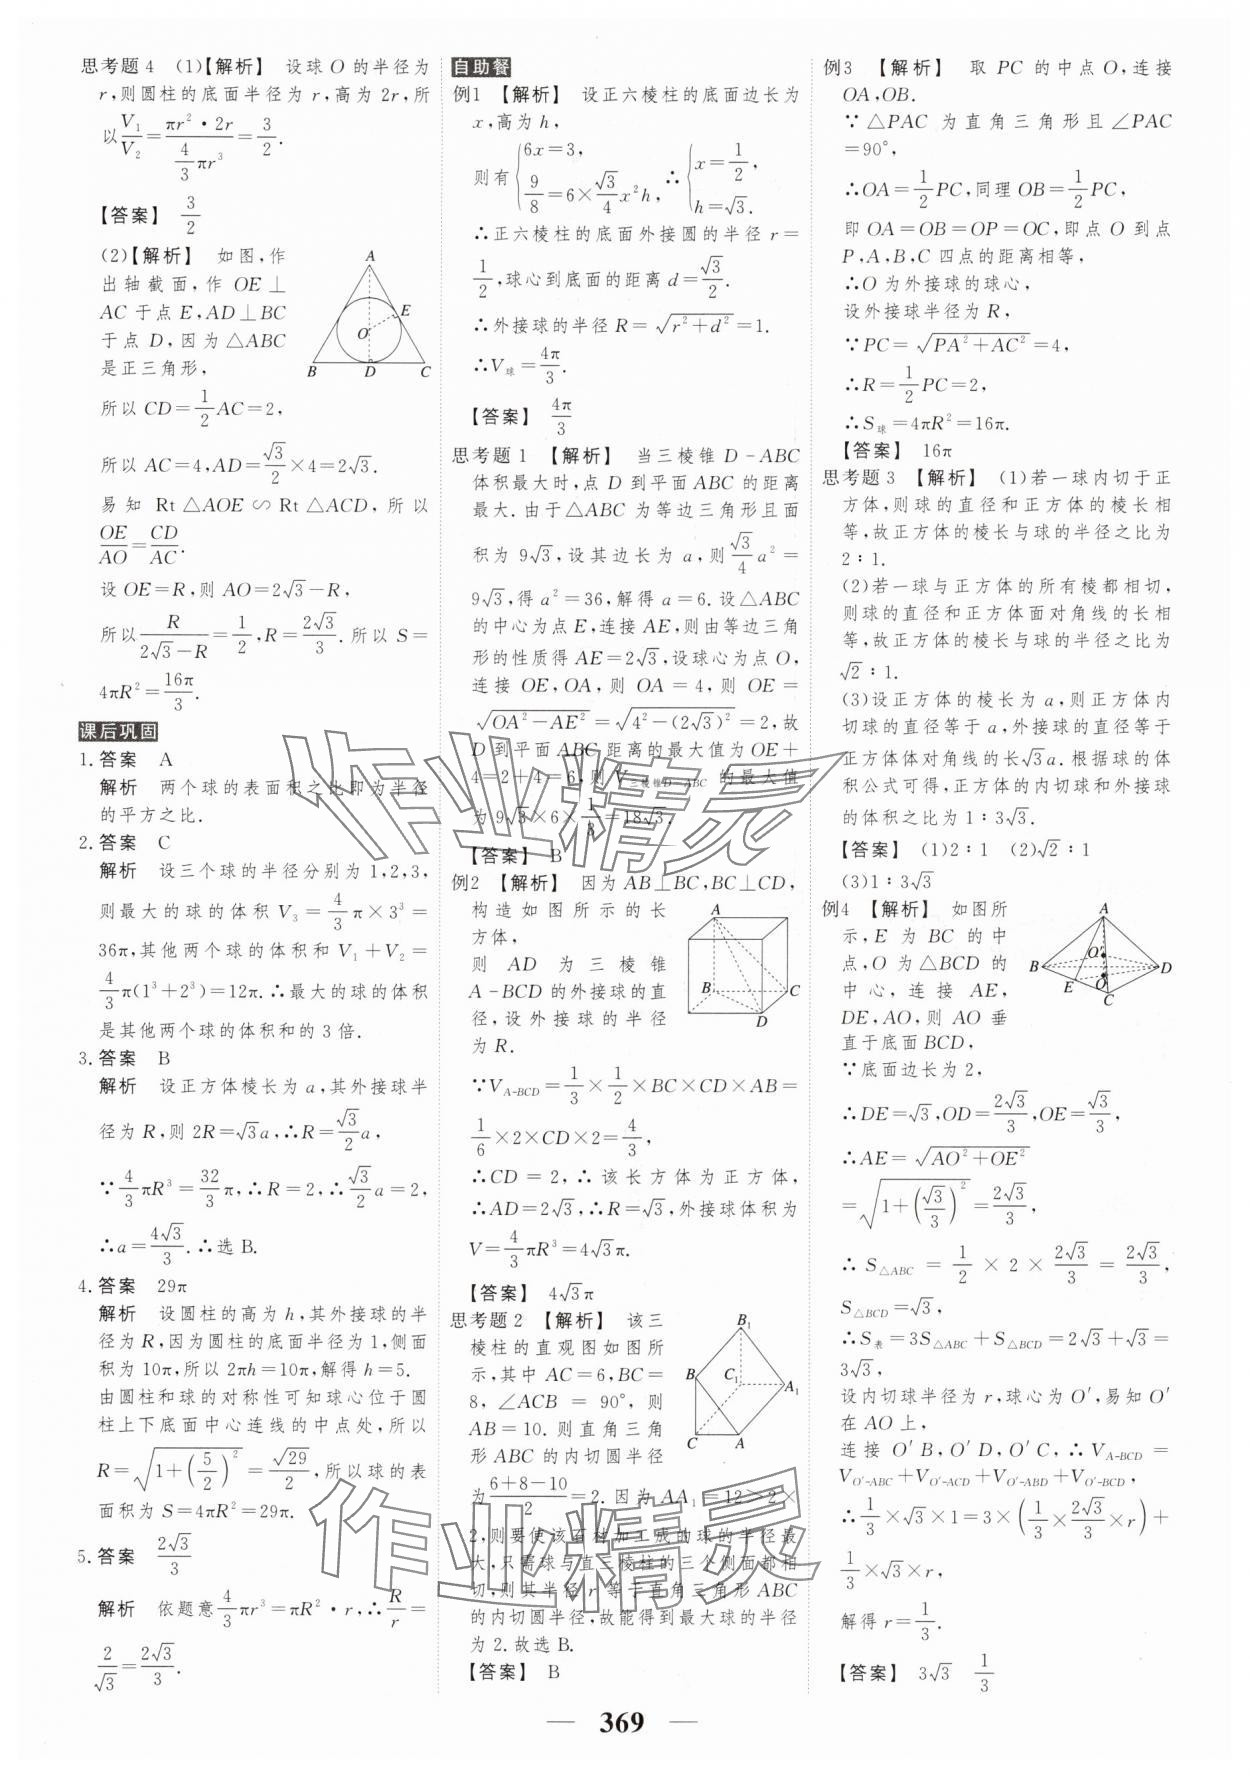 思考题 4 (1)【解析】 设球 O 的半径为
r,则圆柱的底面半径为 r,高为 2r,所
以 V₁/V₂ = (πr²·2r)/(4/3 πr³) = 3/2.
【答案】 3/2
(2)【解析】 如图,作
出轴截面,作 OE⊥
AC 于点 E,AD⊥BC
于点 D,因为△ABC
是正三角形,
A
E
O
B D C
所以 CD=1/2 AC=2,
所以 AC=4,AD=√3/2×4=2√3.
易知 Rt△AOE∽Rt△ACD,所以
OE/AO=CD/AC.
设 OE=R,则 AO=2√3-R,
所以 R/(2√3-R)=1/2,R=2√3/3.所以 S=
4πR²=16π/3.
课后巩固
1. 答案 A
解析 两个球的表面积之比即为半径
的平方之比.
2. 答案 C
解析 设三个球的半径分别为 1,2,3,
则最大的球的体积 V₃=4/3 π×3³=
36π,其他两个球的体积和 V₁+V₂=
4/3 π(1³+2³)=12π.∴最大的球的体积
是其他两个球的体积和的 3 倍.
3. 答案 B
解析 设正方体棱长为 a,其外接球半
径为 R,则 2R=√3a,∴R=√3/2 a,
∵4/3 πR³=32/3 π,∴R=2,∴√3/2 a=2,
∴a=4√3/3.∴选 B.
4. 答案 29π
解析 设圆柱的高为 h,其外接球的半
径为 R,因为圆柱的底面半径为 1,侧面
积为 10π,所以 2πh=10π,解得 h=5.
由圆柱和球的对称性可知球心位于圆
柱上下底面中心连线的中点处,所以
R=√(1+(5/2)²)=√29/2,所以球的表
面积为 S=4πR²=29π.
5. 答案 2√3/3
解析 依题意 4/3 πr³=πR²·r,∴R/r=
2/√3=2√3/3.
自助餐
例1 【解析】 设正六棱柱的底面边长为
x,高为 h,
则有 {6x=3, 9/8=6×√3/4 x²h, ∴{x=1/2, h=√3.
∴正六棱柱的底面外接圆的半径 r=
1/2,球心到底面的距离 d=√3/2.
∴外接球的半径 R=√(r²+d²)=1.
∴V球=4π/3.
【答案】 4π/3
思考题 1 【解析】 当三棱锥 D-ABC
体积最大时,点 D 到平面 ABC 的距离
最大.由于△ABC 为等边三角形且面
积为 9√3,设其边长为 a,则 √3/4 a²=
9√3,得 a²=36,解得 a=6.设△ABC
的中心为点 E,连接 AE,则由等边三角
形的性质得 AE=2√3,设球心为点 O,
连接 OE,OA,则 OA=4,则 OE=
√(OA²-AE²)=√(4²-(2√3)²)=2,故
D 到平面 ABC 距离的最大值为 OE+
4=2+4=6,则 V三棱锥D-ABC 的最大值
为 9√3×6×1/3=18√3.
【答案】 B
例2 【解析】 因为 AB⊥BC,BC⊥CD,
构造如图所示的长
方体,
则 AD 为三棱锥
A-BCD 的外接球的直
径,设外接球的半径
为 R.
A
B C
D
∵V_A-BCD=1/3×1/2×BC×CD×AB=
1/6×2×CD×2=4/3,
∴CD=2,∴该长方体为正方体,
∴AD=2√3,∴R=√3,外接球体积为
V=4/3 πR³=4√3π.
【答案】 4√3π
思考题 2 【解析】 该三
棱柱的直观图如图所
示,其中 AC=6,BC=
8,∠ACB=90°,则
AB=10.则直角三角
形 ABC 的内切圆半径
B₁
B C₁ A₁
C A
为 (6+8-10)/2=2.因为 AA₁=12>2×
2,则要使该石材加工成的球的半径最
大,只需球与直三棱柱的三个侧面都相
切,则其半径 r 等于直角三角形 ABC
的内切圆半径,故能得到最大球的半径
为 2.故选 B.
【答案】 B
例3 【解析】 取 PC 的中点 O,连接
OA,OB.
∵△PAC 为直角三角形且∠PAC
=90°,
∴OA=1/2 PC,同理 OB=1/2 PC,
即 OA=OB=OP=OC,即点 O 到点
P,A,B,C 四点的距离相等,
∴O 为外接球的球心,
设外接球半径为 R,
∵PC=√(PA²+AC²)=4,
∴R=1/2 PC=2,
∴S球=4πR²=16π.
【答案】 16π
思考题 3 【解析】 (1)若一球内切于正
方体,则球的直径和正方体的棱长相
等,故正方体的棱长与球的半径之比为
2∶1.
(2)若一球与正方体的所有棱都相切,
则球的直径和正方体面对角线的长相
等,故正方体的棱长与球的半径之比为
√2∶1.
(3)设正方体的棱长为 a,则正方体内
切球的直径等于 a,外接球的直径等于
正方体体对角线的长√3a.根据球的体
积公式可得,正方体的内切球和外接球
的体积之比为 1∶3√3.
【答案】 (1)2∶1 (2)√2∶1
(3)1∶3√3
例4 【解析】 如图所
示,E 为 BC 的中
点,O 为△BCD 的
中心,连接 AE,
DE,AO,则 AO 垂
直于底面 BCD,
A
O′
B D
E O
C
∵底面边长为 2,
∴DE=√3,OD=2√3/3,OE=√3/3,
∴AE=√(AO²+OE²)
=√(1+(√3/3)²)=2√3/3,
∴S△ABC=1/2×2×2√3/3=2√3/3,
S△BCD=√3,
∴S表=3S△ABC+S△BCD=2√3+√3=
3√3,
设内切球半径为 r,球心为 O′,易知 O′
在 AO 上,
连接 O′B,O′D,O′C,∴V_A-BCD=
V_O′-ABC+V_O′-ACD+V_O′-ABD+V_O′-BCD,
∴1/3×√3×1=3×(1/3×2√3/3×r)+
1/3×√3×r,
解得 r=1/3.
【答案】 3√3 1/3
作业精灵
作业精灵
— 369 —